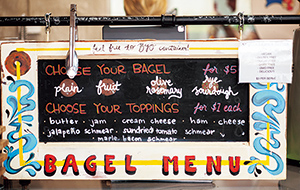 bul free for B.Y.O. container!
CHOOSE YOUR BAGEL for $5
plain fruit olive rosemary rye sourdough
CHOOSE YOUR TOPPINGS for $1 each
butter . jam . cream cheese . ham . cheese
jalapeño schmear . sundried tomato schmear .
maple bacon schmear
BAGEL MENU